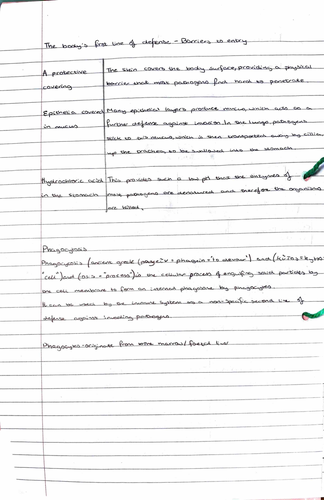 The body's first line of defense - Barriers to entry
A protective covering
The skin covers the body surface, providing a physical
barrier that most pathogens find hard to penetrate.
Epithelia covered in mucus
Many epithelial layers produce mucus, which acts as a
further defense against invasion. In the lungs, pathogens
stick to this mucus, which is then transported away by cilia,
up the trachea, to be swallowed into the stomach.
Hydrochloric acid in the stomach
This provides such a low pH that the enzymes of
most pathogens are denatured and therefore the organisms
are killed.
Phagocytosis
Phagocytosis (ancient greek (phagein = "to devour") and
"cell") and (osis = "process") is the cellular process of engulfing solid particles by
the cell membrane to form an internal phagosome by phagocytes.
It can be used by the immune system as a non-specific second line of
defense against invading pathogens.
Phagocytes - originate from bone marrow/foetal liver